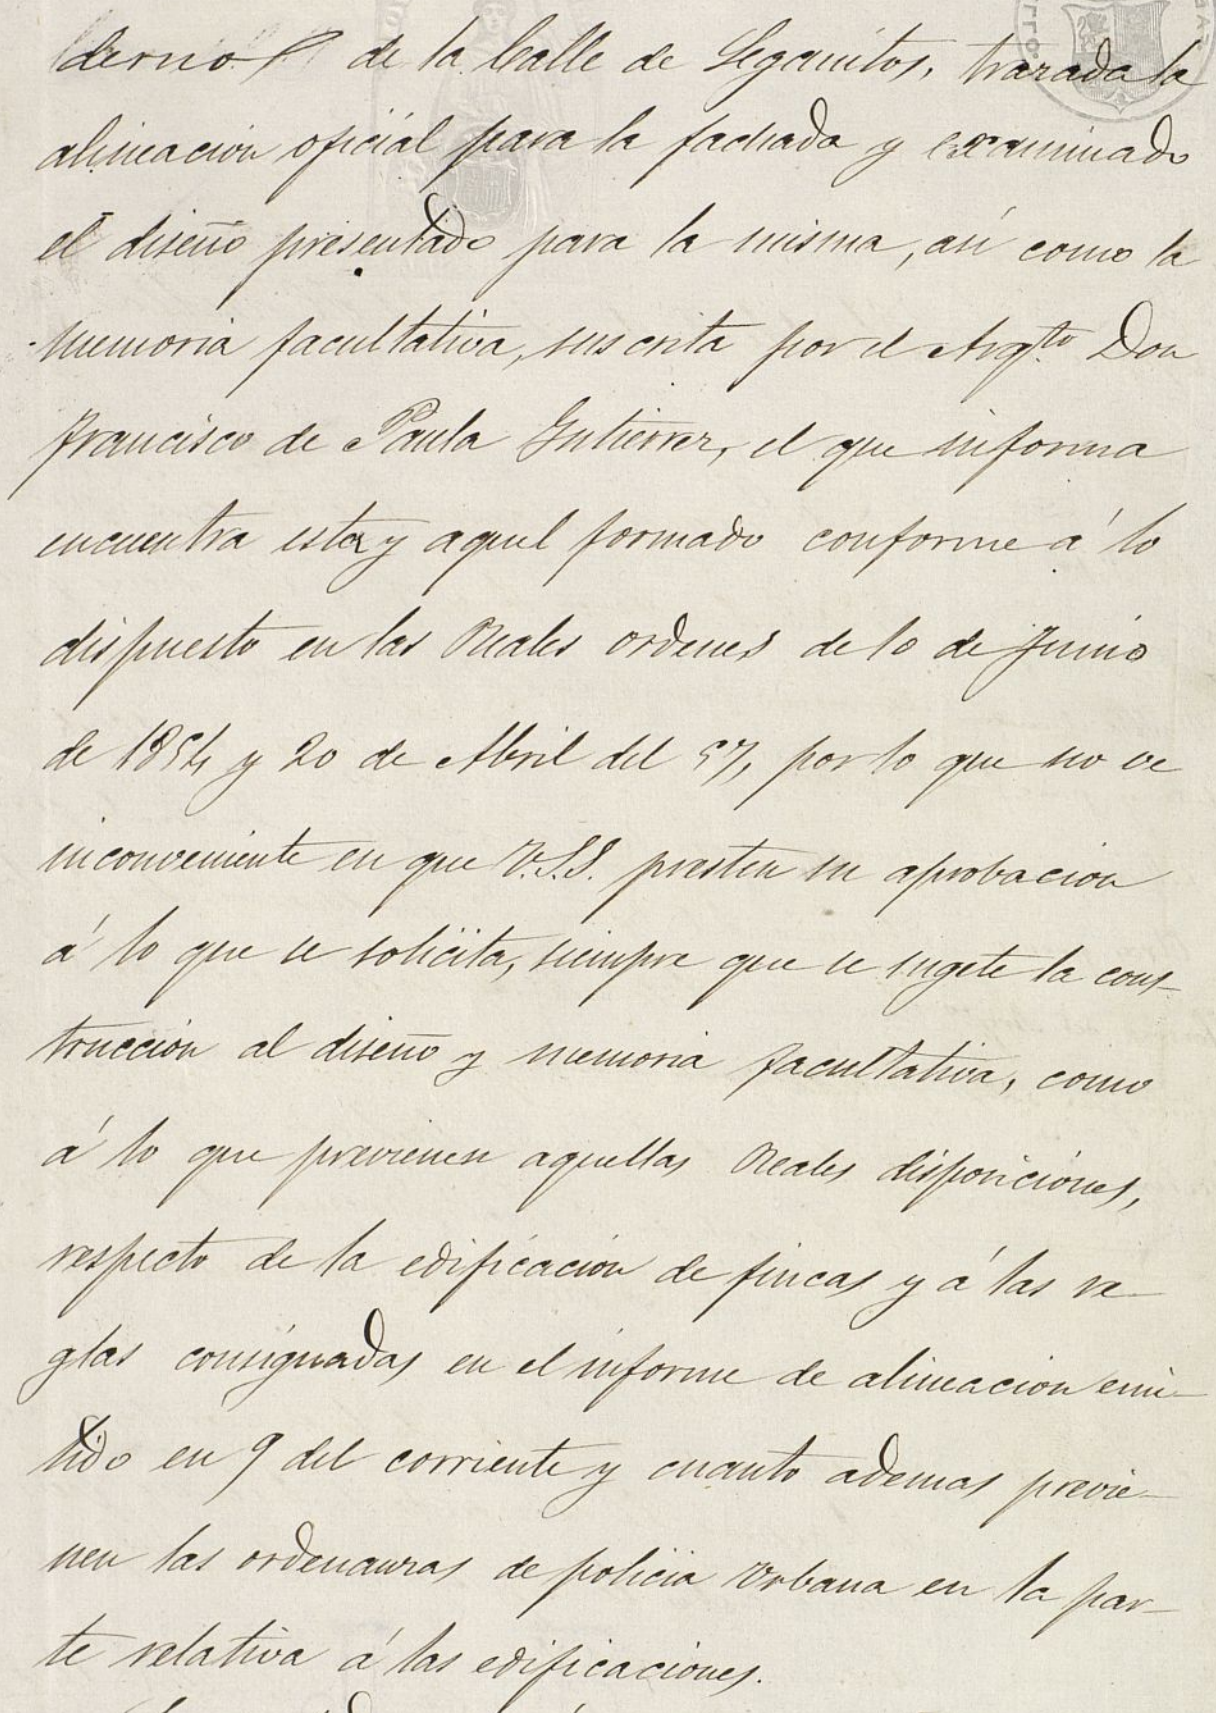 derno de la Calle de Leganitos, trazada la
alineacion oficial para la fachada y examinado
el diseño presentado para la misma, así como la
memoria facultativa, suscrita por el Arqto. Don
Francisco de Paula Gutierrez, el que informa
encuentra esta y aquel formado conforme á lo
dispuesto en las Reales ordenes de 10 de Junio
de 1854 y 20 de Abril del 57, por lo que no ve
inconveniente en que V.S.S. presten su aprobacion
á lo que se solicita, siempre que se sugete la cons-
trucción al diseño y memoria facultativa, como
á lo que previenen aquellas Reales disposiciones,
respecto de la edificación de fincas y á las re-
glas consignadas en el informe de alineacion emi-
tido en 9 del corriente y cuanto ademas previe-
nen las ordenanzas de policia Urbana en la par-
te relativa á las edificaciones.